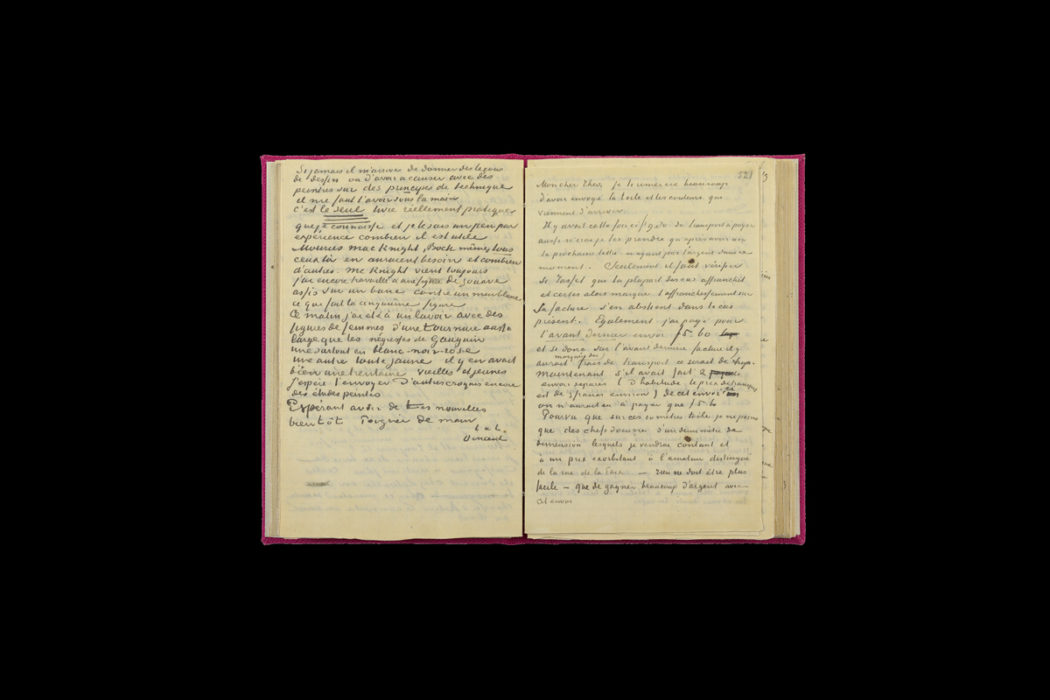 Si jamais il m'arrive de donner des leçons
de dessin ou d'avoir à causer avec des
peintres sur des principes de technique
il me faut l'avoir sous la main
c'est le seul livre réellement pratique
que je connaisse et je le sais un peu par
expérience combien il est utile
Mourier Mac Knight, Bock mêmes tous
ceux là en auraient besoin et combien
d'autres. Mc Knight vient toujours
j'ai encore travaillé à une figure de zouave
assis sur un banc contre un mur blanc
ce que fait la cinquième figure
Ce matin j'ai été à un lavoir avec des
figures de femmes d'une tournure aussi
large que les négresses de Gauguin
une surtout en blanc-noir-rose
une autre toute jaune il y en avait
bien une trentaine vieilles et jeunes
J'espère t'envoyer d'autres croquis encore
des études peintes
Espérant avoir de tes nouvelles
bientôt Poignée de main
t. à t.
Vincent
521
Mon cher Theo, je te remercie beaucoup
d'avoir envoyé la toile et les couleurs qui
viennent d'arriver.
Il y avait cette fois ci de transport à payer
aussi
ta prochaine lettre n'ayant pas l'argent dans ce
moment. Seulement il faut
que la plupart du cas affranchit
et certes alors marque l'affranchissement sur
la facture s'en abstient dans le cas
présent. Egalement j'ai payé pour
l'avant dernier envoi f 5.60
et si donc sur l'avant dernière facture il y
aurait marqués des frais de transport ce serait de trop.
Maintenant s'il avait fait 2
envois séparés (D'habitude le prix de transport
est de 3 francs environ) de cet envoi
on n'aurait eu à payer que f 5.60
Pourvu que sur ces 10 mètres toile je ne peigne
que des chefs d'oeuvre d'un demi mètre de
dimension lesquels je vendrai comptant et
à un prix exorbitant à l'amateur distingué
de la rue de la Paix — rien ne doit être plus
facile — que de gagner beaucoup d'argent avec
cet envoi